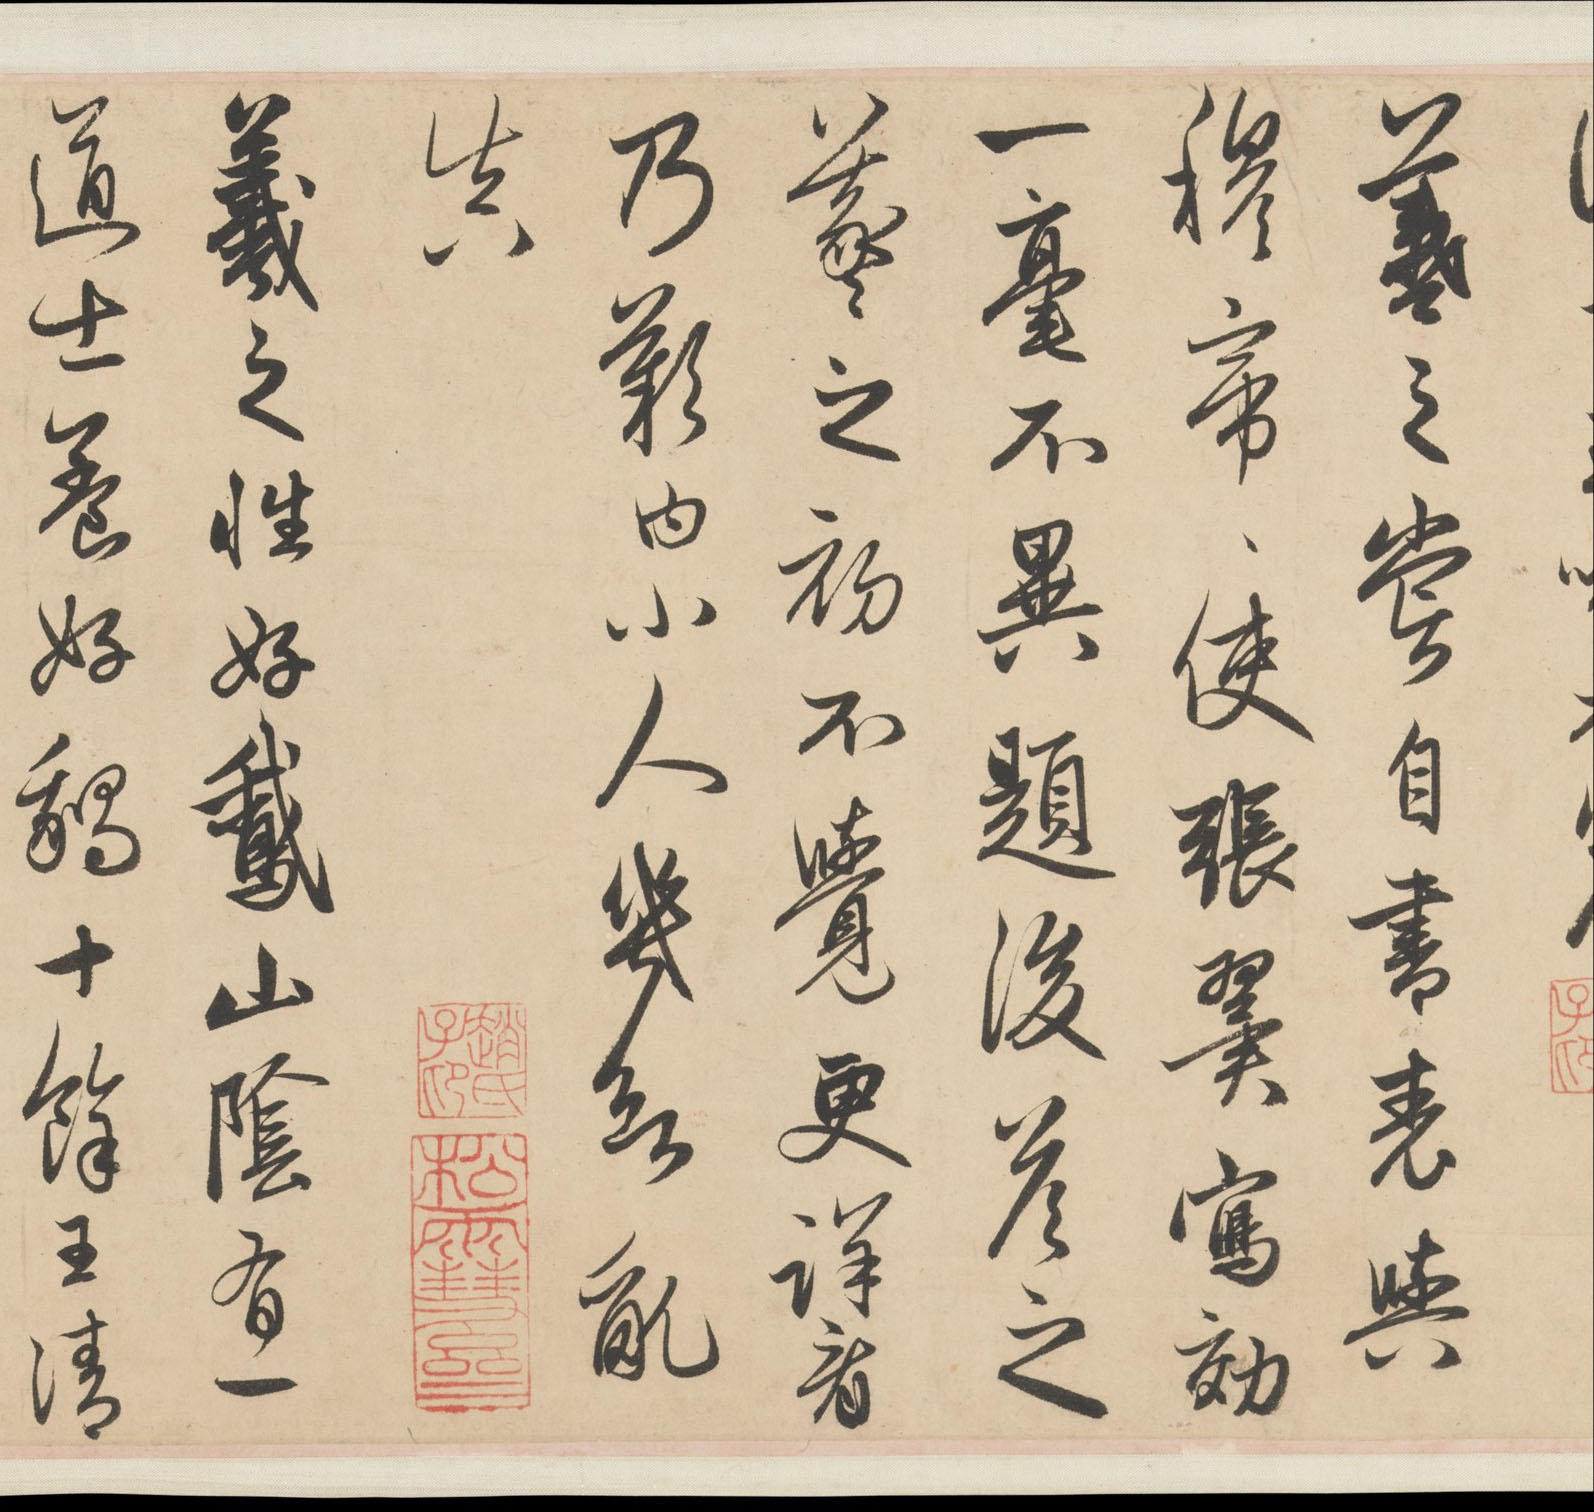 羲之甞自書表與
穆帝、使張翼寫効
一毫不異題後答之
羲之初不覺更詳看
乃歎曰小人幾欲亂
真
趙氏子昂
松雪齋
羲之性好鵞山陰有一
道士養好鵝十餘王清